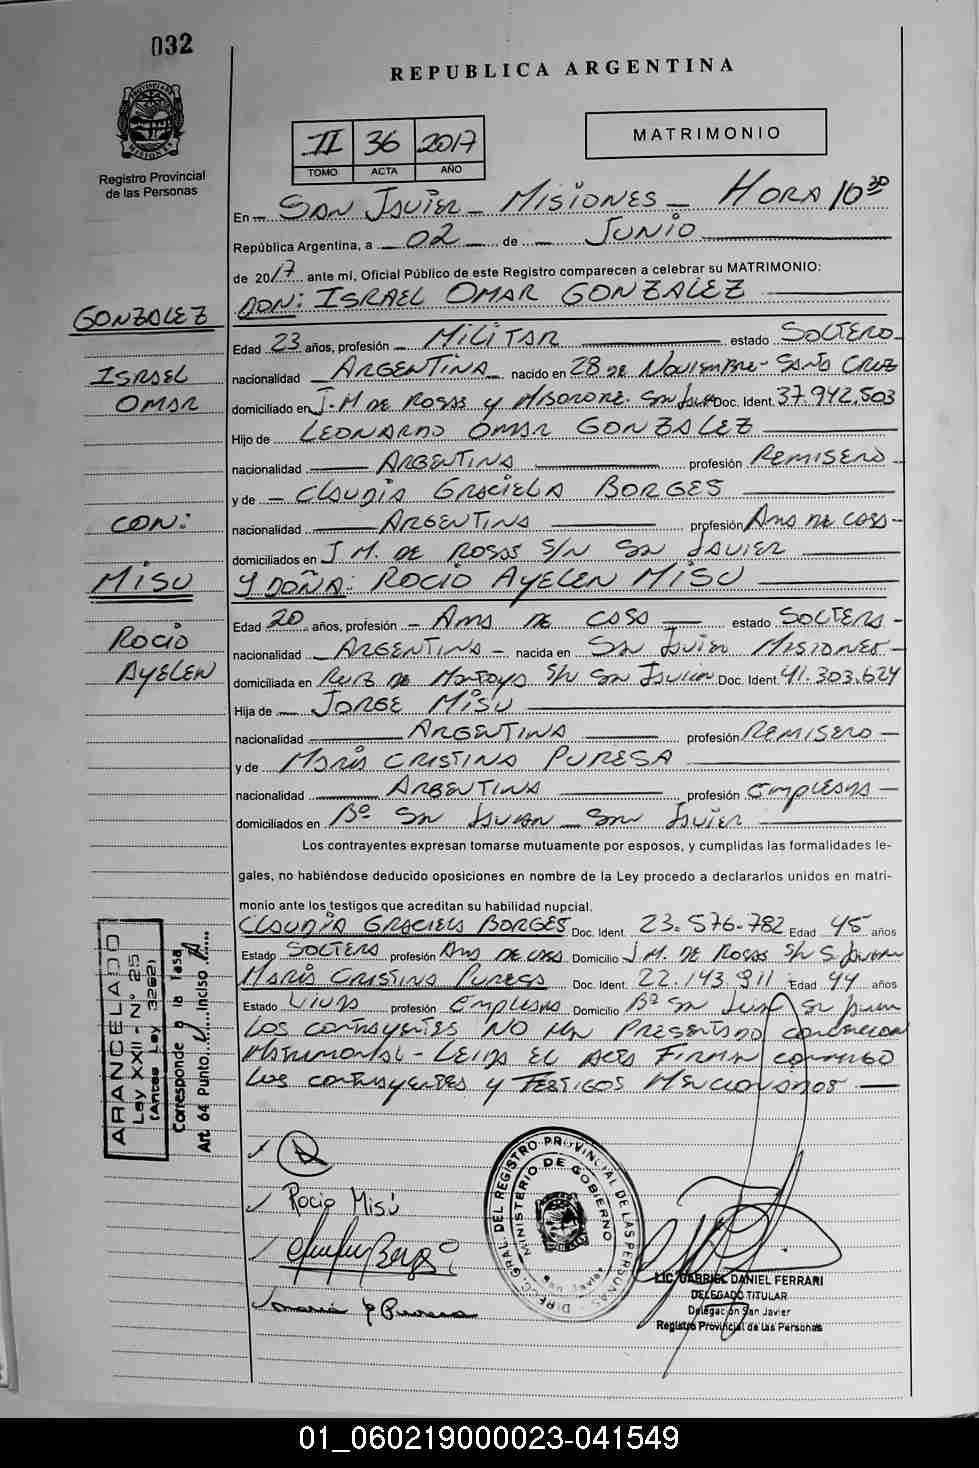 032
REPUBLICA ARGENTINA
Registro Provincial
de las Personas
II 36 2017
TOMO ACTA AÑO
MATRIMONIO
En SAN JAVIER - MISIONES - HORA 10 30
República Argentina, a 02 de JUNIO
de 2017 ante mi, Oficial Público de este Registro comparecen a celebrar su MATRIMONIO:
GONZALEZ
ISRAEL
OMAR
CON:
MISU
ROCIO
AYELEN
DON: ISRAEL OMAR GONZALEZ
Edad 23 años, profesión MILITAR estado SOLTERO
nacionalidad ARGENTINA nacido en 28 DE NOVIEMBRE - SANTA CRUZ
domiciliado en J. M DE ROSAS y SAN JAVIER Doc. Ident. 37.942.503
Hijo de LEONARDO OMAR GONZALEZ
nacionalidad ARGENTINA profesión REMISERO
y de CLAUDIA GRACIELA BORGES
nacionalidad ARGENTINA profesión AMA DE CASA
domiciliados en J. M. DE ROSAS S/N SAN JAVIER
Y DOÑA: ROCIO AYELEN MISU
Edad 20 años, profesión AMA DE CASA estado SOLTERA
nacionalidad ARGENTINA nacida en SAN JAVIER MISIONES
domiciliada en RUIZ DE MONTOYA S/N SAN JAVIER Doc. Ident. 41.303.624
Hija de JORGE MISU
nacionalidad ARGENTINA profesión REMISERO
y de MARIA CRISTINA PURESA
nacionalidad ARGENTINA profesión EMPLEADA
domiciliados en Bº SAN JUAN - SAN JAVIER
Los contrayentes expresan tomarse mutuamente por esposos, y cumplidas las formalidades le-
gales, no habiéndose deducido oposiciones en nombre de la Ley procedo a declararlos unidos en matri-
monio ante los testigos que acreditan su habilidad nupcial.
CLAUDIA GRACIELA BORGES Doc. Ident. 23.576.782 Edad 45 años
Estado SOLTERA profesión AMA DE CASA Domicilio J. M. DE ROSAS S/N S. JAVIER
MARIA CRISTINA PURESA Doc. Ident. 22.143.911 Edad 44 años
Estado VIUDA profesión EMPLEADA Domicilio Bº SAN JUAN
LOS CONTRAYENTES NO HAN PRESENTADO CONVENCION
MATRIMONIAL - LEIDA EL ACTA FIRMAN CONMIGO
LOS CONTRAYENTES Y TESTIGOS MENCIONADOS
ARANCELADO
Ley XXII - Nº 25
(Antes Ley 3262)
Corresponde a la Tasa
Art. 64 Punto Inciso
Rocio Misú
DIREC. GRAL DEL REGISTRO PROVINCIAL DE LAS PERSONAS
MINISTERIO DE GOBIERNO
LIC. GABRIEL DANIEL FERRARI
DELEGADO TITULAR
Delegación San Javier
Registro Provincial de las Personas
01_060219000023-041549